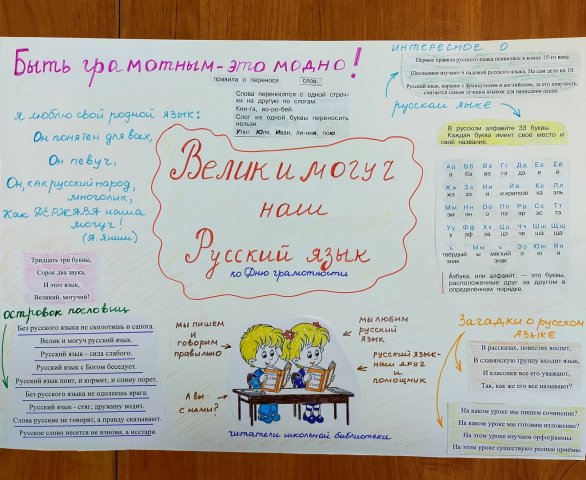 Быть грамотным-это модно!
правила о переносе слов.
Слова переносятся с одной строч-
ки на другую по слогам.
Кни-га, во-ро-бей.
Слог из одной буквы переносить
нельзя.
Утюг, Юля, Иван, ли-ния, пою.
интересное о
русском языке
Первые правила русского языка появились в конце 15-го века.
Школьники изучают 6 падежей русского языка. На сам деле их 10.
Русский язык, наравне с французским и английским, за его певучесть,
считается самым лучшим языком для написания песен.
Я люблю свой родной язык:
Он понятен для всех,
Он певуч,
Он, как русский народ,
многолик,
Как ДЕРЖАВА наша
могуч!
(А. Яшин)
Велик и могуч
наш
Русский язык
ко Дню грамотности
В русском алфавите 33 буквы.
Каждая буква имеет своё место и
своё название.
Аа Бб Вв Гг Дд Ее Ёё
а бэ вэ гэ дэ е ё
Жж Зз Ии Йй Кк Лл
жэ зэ и и краткое ка эль
Мм Нн Оо Пп Рр Сс Тт
эм эн о пэ эр эс тэ
Уу Фф Хх Цц Чч Шш Щщ
у эф ха цэ че ша ща
ъ Ыы ь Ээ Юю Яя
твёрдый ы мягкий э ю я
знак знак
Азбука, или алфавит, — это буквы,
расположенные друг за другом в
определённом порядке.
Тридцать три буквы,
Сорок два звука,
И этот язык,
Великий, могучий!
островок пословиц
Без русского языка не сколотишь и сапога.
Велик и могуч русский язык.
Русский язык - сила слабого.
Русский язык с Богом беседует.
Русский язык поит, и кормит, и спину порет.
Без русского языка не одолеешь врага.
Русский язык - стяг, дружину водит.
Слова русские не говорят, а правду сказывают.
Русское слово несется не изнови, а исстари.
мы пишем
и
говорим
правильно
А вы
с нами?
мы любим
русский
язык
русский язык-
наш друг
и
помощник
читатели школьной библиотеки
Загадки о русском
языке
В рассказах, повестях воспет,
В славянскую группу входит язык,
И классики все его уважают,
Так, как же его все называют?
На каком уроке мы пишем сочинение?
На каком уроке мы готовим изложение?
На этом уроке изучаем орфограммы.
На этом уроке существуют разные приёмы.